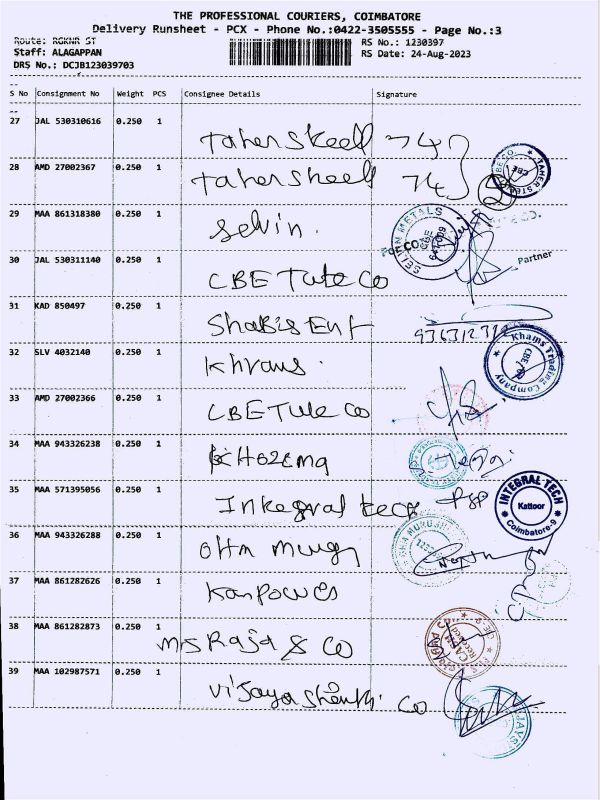 THE PROFESSIONAL COURIERS, COIMBATORE
Delivery Runsheet - PCX - Phone No.:0422-3505555 - Page No.:3
Route: RGKNR ST
RS No.: 1230397
Staff: ALAGAPPAN
RS Date: 24-Aug-2023
DRS No.: DCJB123039703
S No Consignment No Weight PCS Consignee Details Signature
27 JAL 530310616 0.250 1
Taher Steell 74
28 AMD 27002367 0.250 1
Taher Steell 74
29 MAA 861318380 0.250 1
Selvin.
SELVAN METALS
CBE
641009
30 JAL 530311140 0.250 1
Partner
CBE Tube Co
31 KAD 850497 0.250 1
Shabis Ent
32 SLV 4032140 0.250 1
Khrams.
Khams Trading Company
CBE
33 AMD 27002366 0.250 1
CBE Tube Co
34 MAA 943326238 0.250 1
35 MAA 571395056 0.250 1
Inkegral teck
INTEGRAL TECH
Kattoor
Coimbatore-9
36 MAA 943326288 0.250 1
Ohm Muga
37 MAA 861282626 0.250 1
Kanpowes
38 MAA 861282873 0.250 1
MS Raja & Co
39 MAA 102987571 0.250 1
Vijaya Shenthi Co